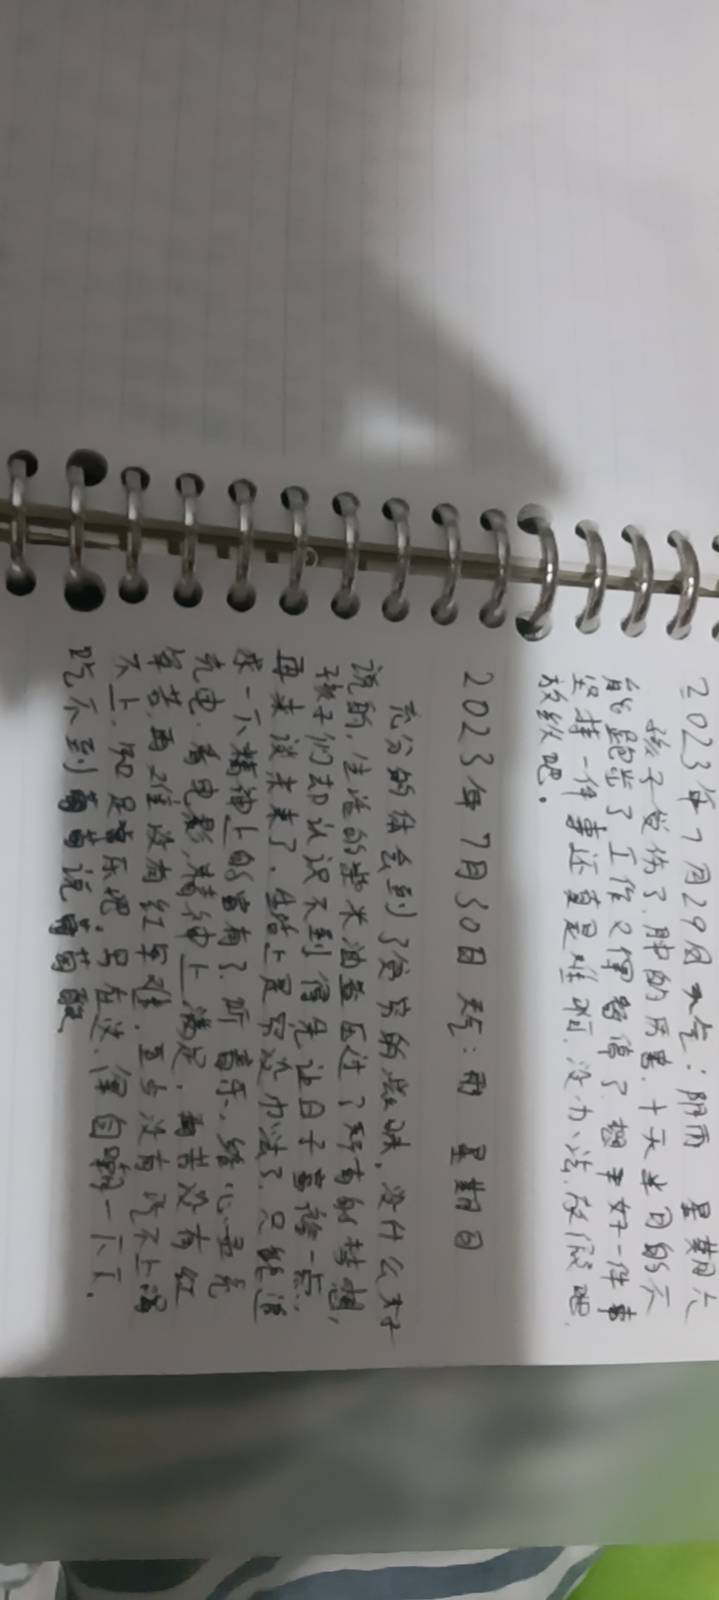 2023年7月29日 天气：阴雨 星期六
孩子受伤了，肿的厉害，十天半月的不
能跑步了工作又得暂停了，想事好一件事
坚持一件事还真是难啊，没办法，放假吧，
放纵吧。
2023年7月30日 天气：雨 星期日
充分的体会到了贫穷的滋味，没什么好
说的，生活的柴米油盐压过了所有的梦想，
孩子们却认识不到得先让日子富裕一点，
再来谈未来了，生活上是穷没办法了，只能追
求一下精神上的富有了，听音乐，给心灵充
充电，看电影，精神上满足，再苦没有红
军苦，再难没有红军难，至少没有吃不上喝
不上，知足常乐吧，穷在这，得自嘲一下了，
吃不到葡萄说葡萄酸